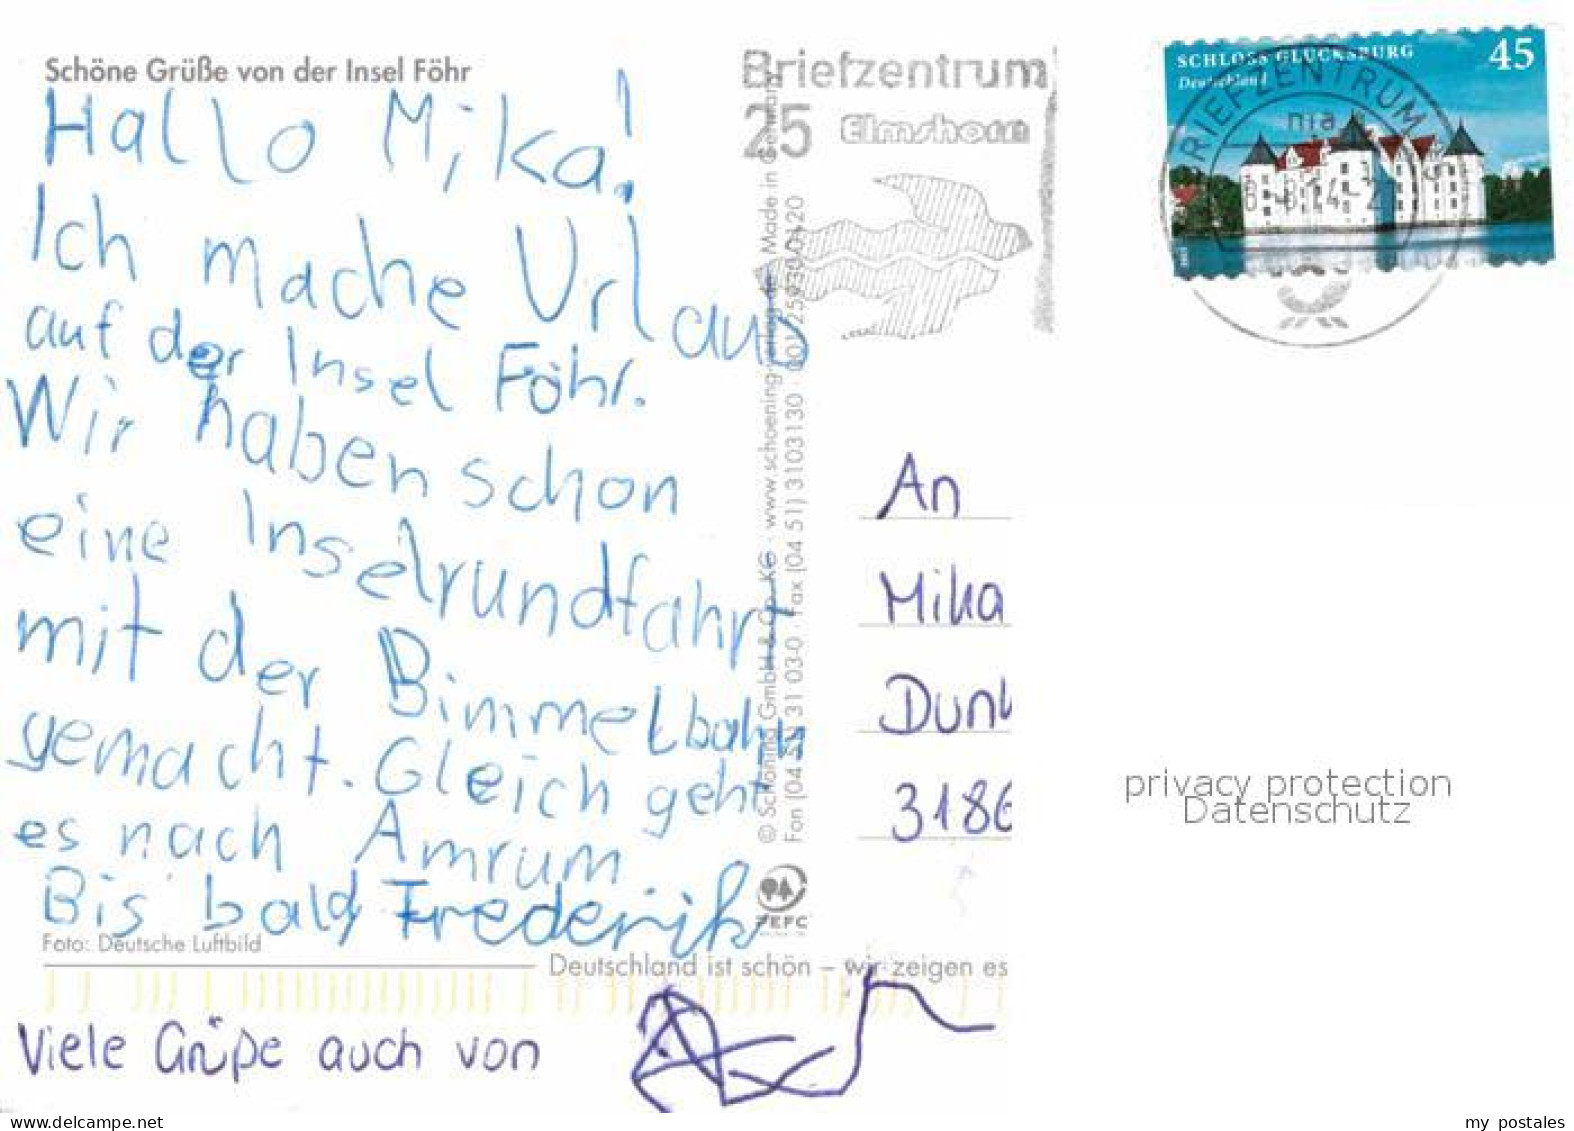 Schöne Grüße von der Insel Föhr
Hallo Mika!
Ich mache Urlaub
auf der Insel Föhr.
Wir haben schon
eine Inselrundfahrt
mit der Bimmelbahn
gemacht. Gleich geht
es nach Amrum.
Bis bald Frederik
Foto: Deutsche Luftbild
Deutschland ist schön – wir zeigen es
Viele Grüße auch von
© Schöning GmbH & Co. KG · www.schoening-verlag.de · Made in Germany
Fon (04 51) 31 03-0 · Fax (04 51) 3103130
PEFC
Briefzentrum
25 Elmshorn
SCHLOSS GLÜCKSBURG 45
Deutschland
BRIEFZENTRUM
An
Mika
3186
privacy protection
Datenschutz
www.delcampe.net
my postales